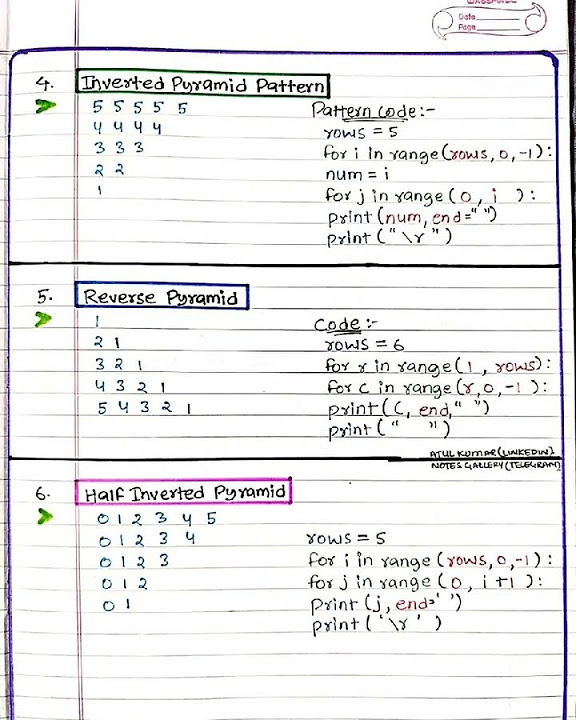 Date
Page
4. Inverted Pyramid Pattern
5 5 5 5 5
4 4 4 4
3 3 3
2 2
1
Pattern code:-
rows = 5
for i in range(rows, 0, -1):
num = i
for j in range(0, i ):
print(num, end=" ")
print("\r")
5. Reverse Pyramid
1
2 1
3 2 1
4 3 2 1
5 4 3 2 1
Code:-
rows = 6
for r in range(1, rows):
for c in range(r,0,-1):
print(C, end," ")
print(" ")
ATUL KUMAR(LINKEDIN)
NOTES GALLERY(TELEGRAM)
6. Half Inverted Pyramid
0 1 2 3 4 5
0 1 2 3 4
0 1 2 3
0 1 2
0 1
rows = 5
for i in range(rows,0,-1):
for j in range(0, i+1):
print(j, end=' ')
print('\r')